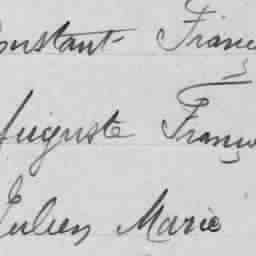 onstant Franç
Auguste Franço
Julien Marie